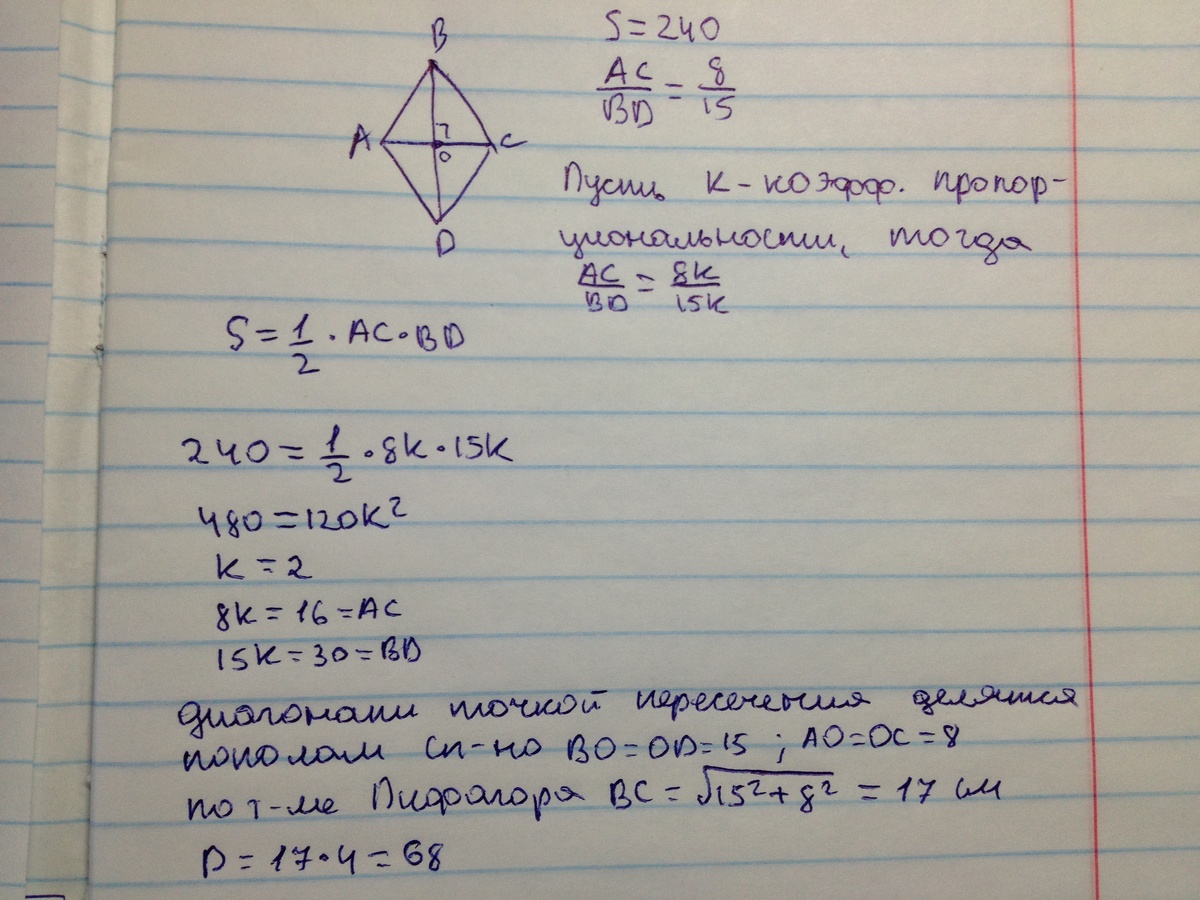 B
A
C
O
D
S=240
AC/BD = 8/15
Пусть К-коэфф. пропор-
циональности, тогда
AC/BD = 8K/15K
S = 1/2 · AC · BD
240 = 1/2 · 8K · 15K
480 = 120K²
K = 2
8K = 16 = AC
15K = 30 = BD
диагонали точкой пересечения делятся
пополам сл-но BO=OD=15 ; AO=OC=8
по т-ме Пифагора BC = √15²+8² = 17 см
P = 17·4 = 68